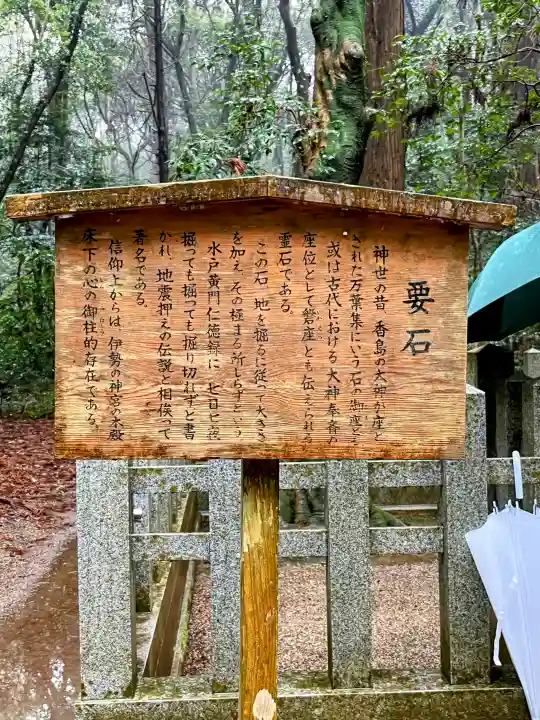 要石
神世の昔 香島の大神が座と
された万葉集にいう石の御座とも
或は古代における大神奉斎の
座位として磐座とも伝えられる
霊石である。
この石、地を掘るに従って大きさ
を加え その極まる所しらずという
水戸黄門仁徳録に 七日七夜
掘っても掘っても掘り切れずと書
かれ、地震押えの伝説と相俟って
著名である。
信仰上からは、伊勢の神宮の本殿
床下の心の御柱的存在である。